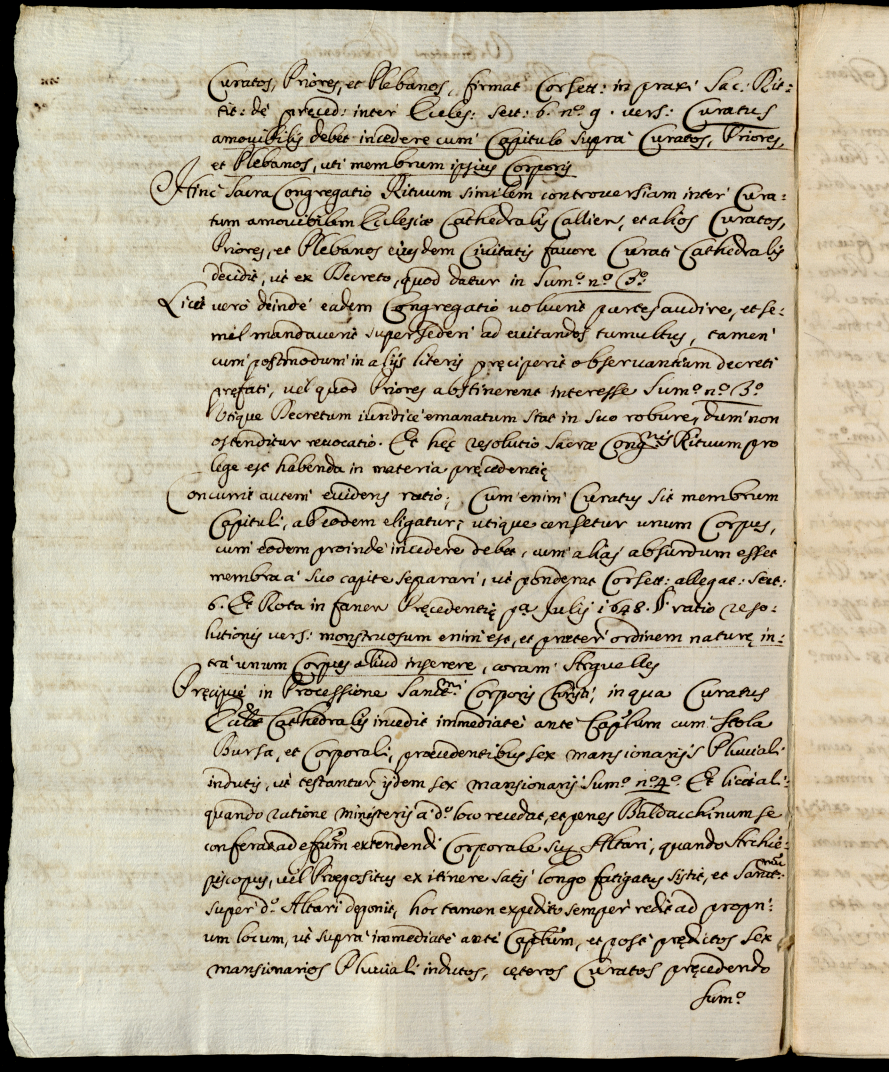 Curatos, Priores, et Plebanos, firmat Corsett: in praxi Sac: Rit-
tit: de preced: inter Eccles: sect: 6. nº. 9. vers: Curatus
amovibilis debet incedere cum Capitulo supra Curatos, Priores,
et Plebanos, uti membrum ipsius Corporis
Hinc Sacra Congregatio Rituum similem controversiam inter Cura-
tum amovibilem Ecclesiæ Cathedralis Callien, et alios Curatos,
Priores, et Plebanos eiusdem Civitatis favore Curati Cathedralis
decidit, ut ex Decreto, quod datur in Sumº. nº. 3º.
Licet verò deinde eadem Congregatio voluerit partes audire, et se-
mel mandaverit supersederi ad evitandos tumultus, tamen
cum postmodum in alijs literis pręciperit observantiam decreti
pręfati, vel quod Priores abstinerent interesse Sumº. nº. 3º.
Utique Decretum iuridicè emanatum stat in suo robure, dum non
ostenditur revocatio. Et hęc resolutio Sacræ Congnis Rituum pro
lege est habenda in materia pręcedentię
Concurrit autem evidens ratio; Cum enim Curatus sit membrum
Capituli, ab eodem eligatur; utique censetur unum Corpus,
cum eodem proindè incedere debet, cum alias absurdum esset
membra a suo capite separari, ut ponderat Corsett: allegat: sect:
6. Et Rota in faner Pręcedentię pa. Julij 1648. §. ratio reso-
lutionis vers: monstruosum enim est, et præter ordinem naturę in-
tra unum Corpus aliud inserere, coram Arguelles
Pręcipuè in Processione Sanctmi Corporis Christi, in qua Curatus
Eccle Cathedralis incedit immediatè ante Capłum cum Stola
Bursa, et Corporali, præcedentibus sex mansionarijs Pluviali
indutis, ut testantur ijdem sex mansionarij Sumº. nº. 4º. Et licet ali-
quando ratione ministerij a dº. loco recedat, et penes Baldacchinum se
conferat ad effum extendendi Corporale sup Altari, quando Archie-
piscopus, vel Præpositus ex itinere satis longo fatigatus sistit, et Sanct:mũ
super dº. Altari deponit, hoc tamen expedito semper redit ad propri-
um locum, ut supra immediatè antè Capłum, et post prędictos sex
mansionarios Pluviali indutos, cęteros Curatos pręcedendo
Sumº.